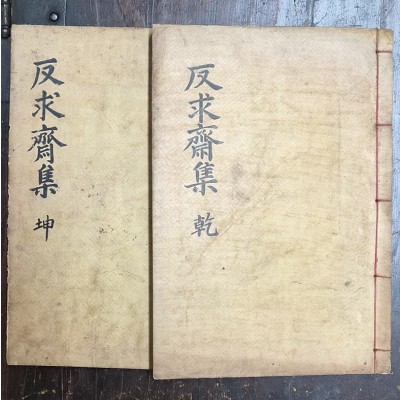 反求齋集 乾
反求齋集 坤